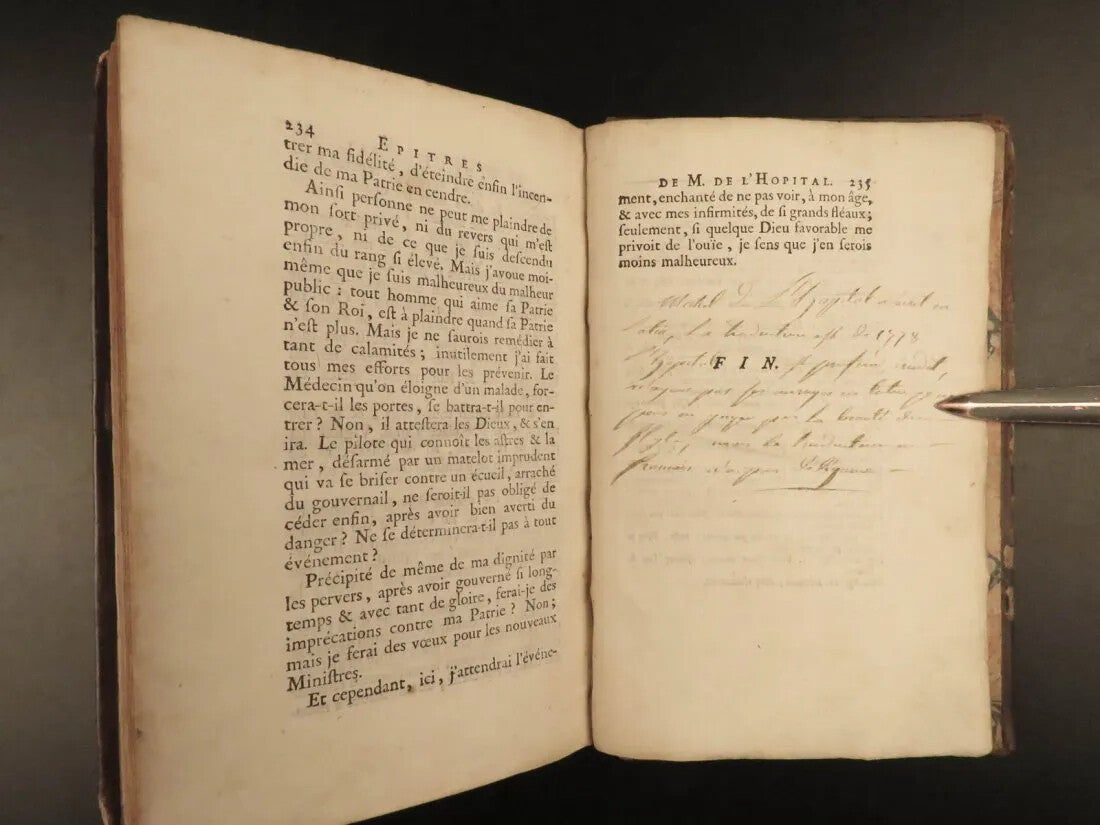 234 EPITRES
trer ma fidélité, d'éteindre enfin l'incen-
die de ma Patrie en cendre.
Ainsi personne ne peut me plaindre de
mon sort privé, ni du revers qui m'est
propre, ni de ce que je suis descendu
enfin du rang si élevé. Mais j'avoue moi-
même que je suis malheureux du malheur
public : tout homme qui aime sa Patrie
& son Roi, est à plaindre quand sa Patrie
n'est plus. Mais je ne saurois remédier à
tant de calamités ; inutilement j'ai fait
tous mes efforts pour les prévenir. Le
Médecin qu'on éloigne d'un malade, for-
cera-t-il les portes, se battra-t-il pour en-
trer ? Non, il attestera les Dieux, & s'en
ira. Le pilote qui connoît les astres & la
mer, désarmé par un matelot imprudent
qui va se briser contre un écueil, arraché
du gouvernail, ne seroit-il pas obligé de
céder enfin, après avoir bien averti du
danger ? Ne se déterminera-t-il pas à tout
événement ?
Précipité de même de ma dignité par
les pervers, après avoir gouverné si long-
temps & avec tant de gloire, ferai-je des
imprécations contre ma Patrie ? Non ;
mais je ferai des vœux pour les nouveaux
Ministres.
Et cependant, ici, j'attendrai l'événe-
DE M. DE L'HOPITAL. 235
ment, enchanté de ne pas voir, à mon âge,
& avec mes infirmités, de si grands fléaux ;
seulement, si quelque Dieu favorable me
privoit de l'ouïe, je sens que j'en serois
moins malheureux.
Michel de L'Hopital a écrit en
latin, la traduction est de 1778
FIN.
par la beauté du
mais la traduction